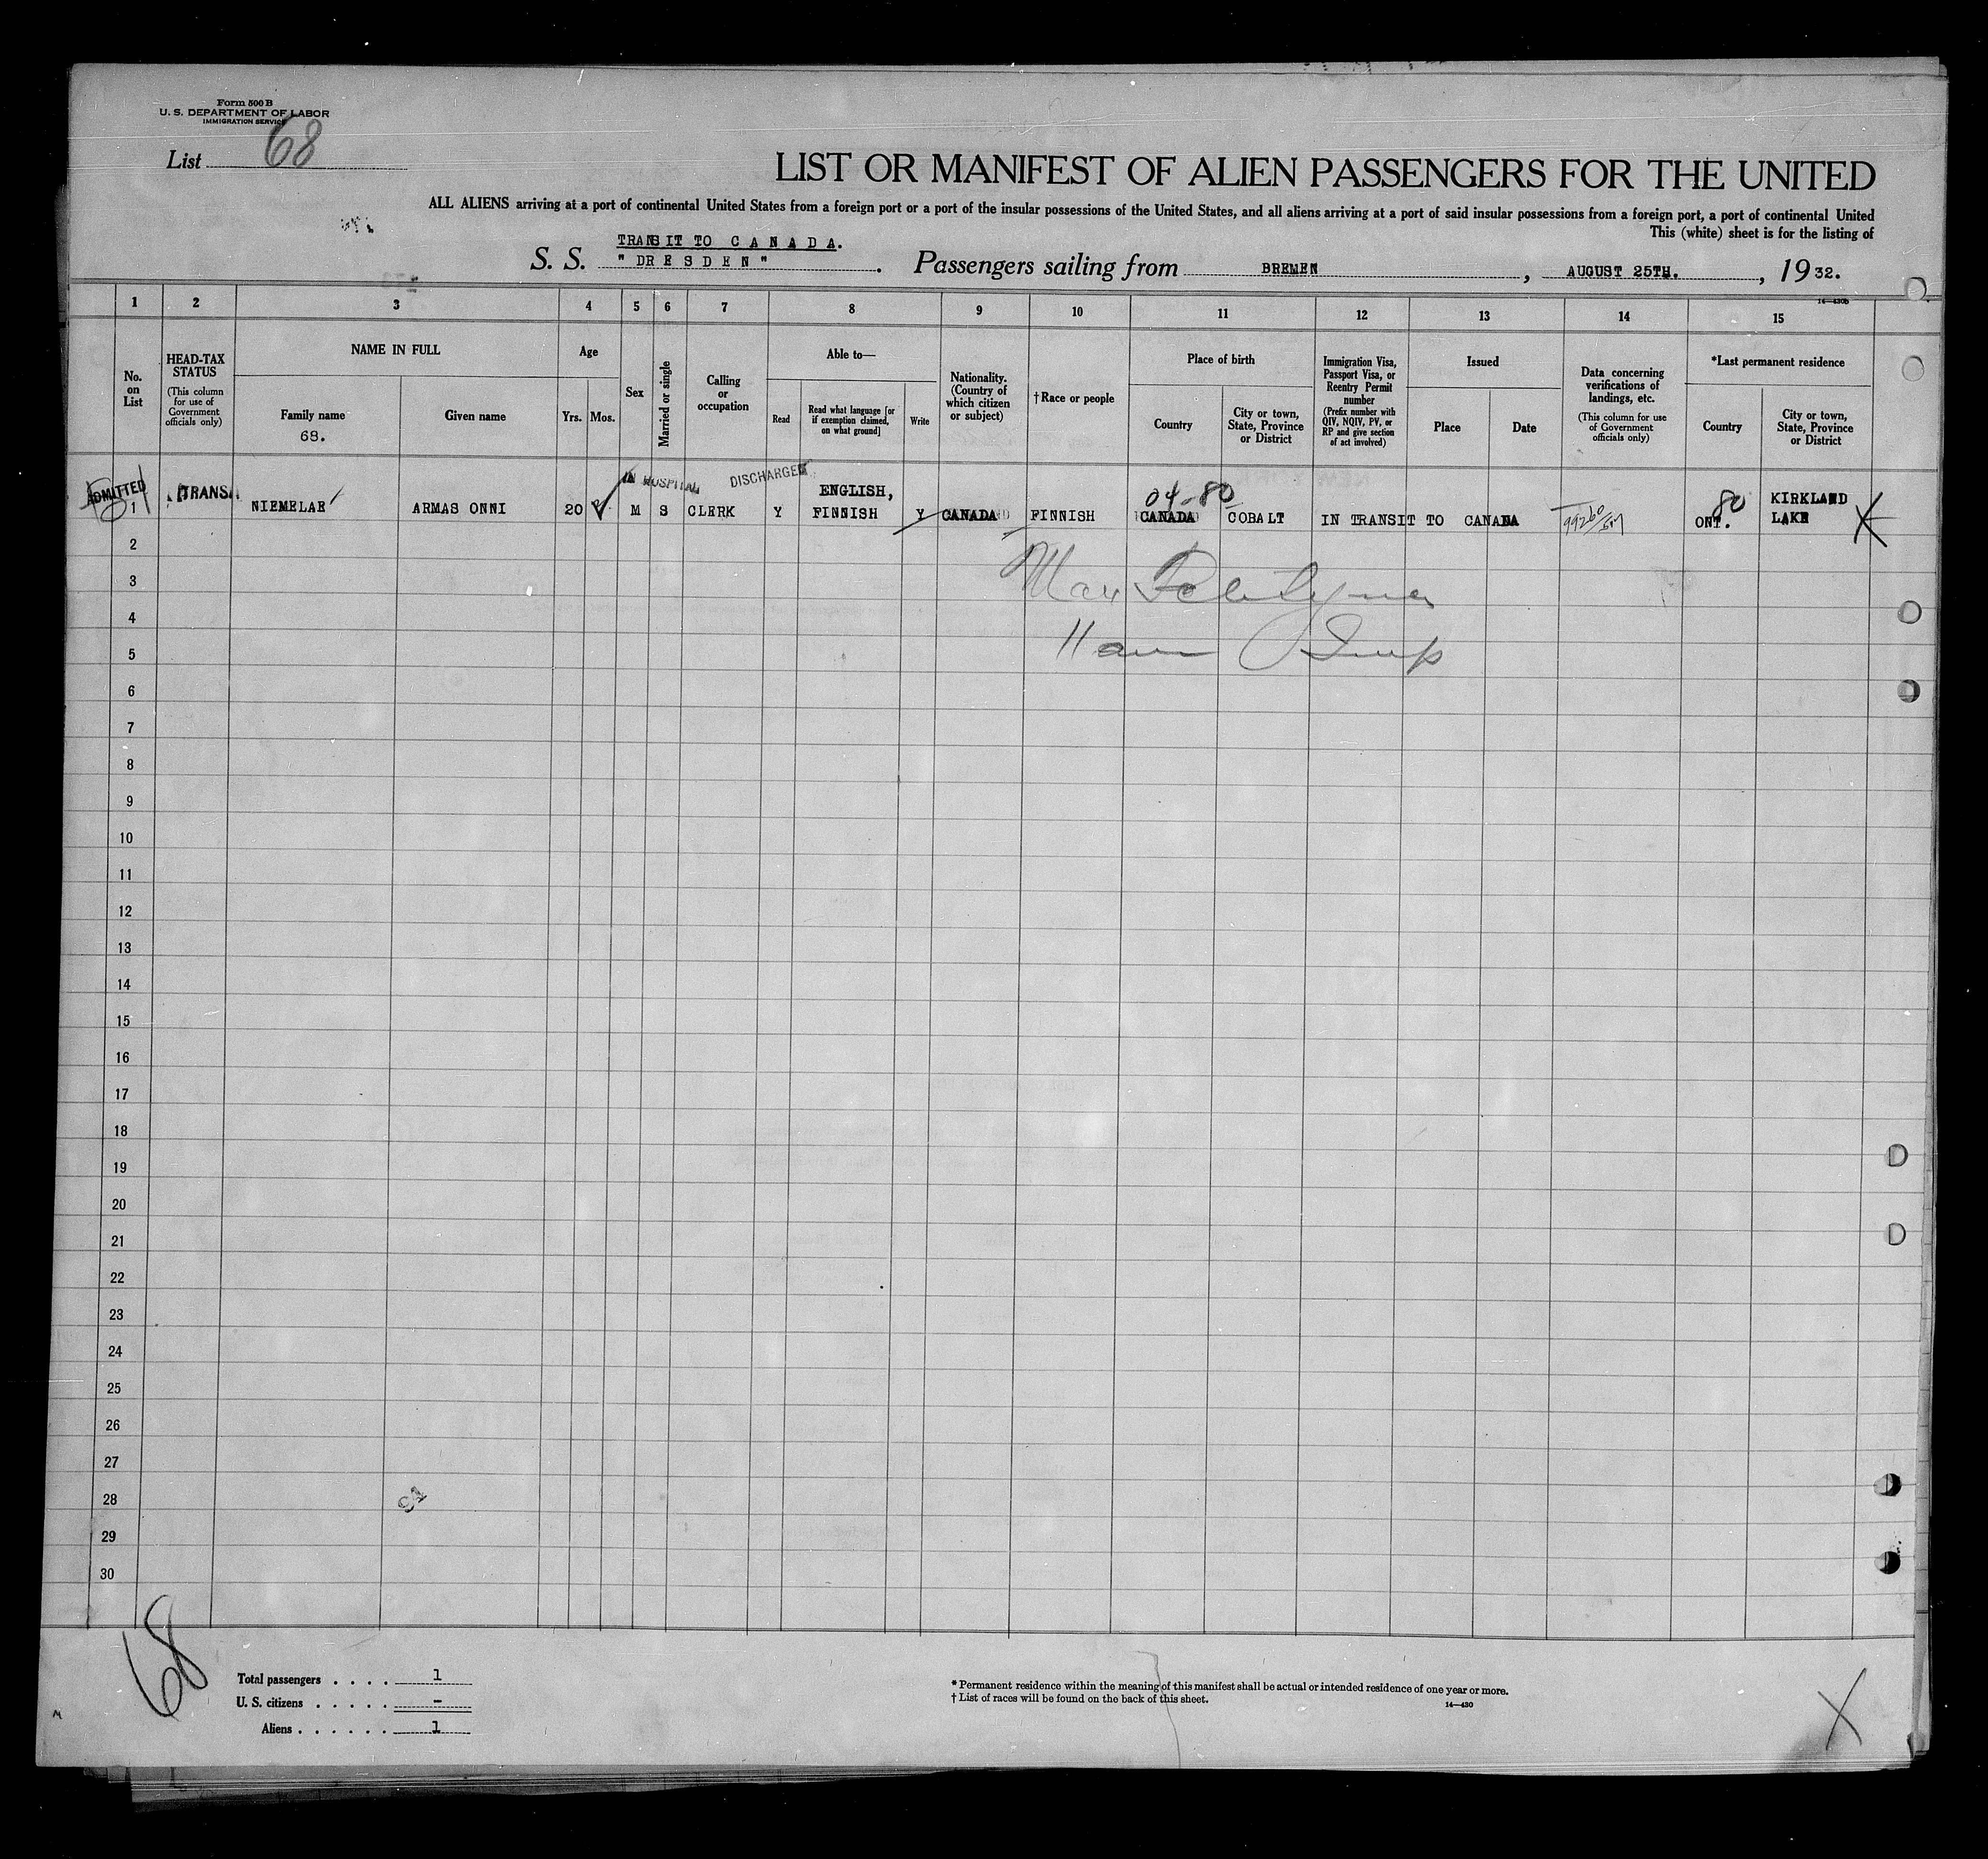 Form 500 B
U. S. DEPARTMENT OF LABOR
IMMIGRATION SERVICE
List 68
LIST OR MANIFEST OF ALIEN PASSENGERS FOR THE UNITED
ALL ALIENS arriving at a port of continental United States from a foreign port or a port of the insular possessions of the United States, and all aliens arriving at a port of said insular possessions from a foreign port, a port of continental United
This (white) sheet is for the listing of
TRANSIT TO CANADA.
S. S. "DRESDEN". Passengers sailing from BREMEN, AUGUST 25TH., 1932.
14—430B
1 2 3 4 5 6 7 8 9 10 11 12 13 14 15
No. on List
HEAD-TAX STATUS (This column for use of Government officials only)
NAME IN FULL
Family name
68.
Given name
Age
Yrs. Mos.
Sex
Married or single
Calling or occupation
Able to—
Read
Read what language [or if exemption claimed, on what ground]
Write
Nationality. (Country of which citizen or subject)
†Race or people
Place of birth
Country
City or town, State, Province or District
Immigration Visa, Passport Visa, or Reentry Permit number (Prefix number with QIV, NQIV, PV, or RP and give section of act involved)
Issued
Place
Date
Data concerning verifications of landings, etc. (This column for use of Government officials only)
*Last permanent residence
Country
City or town, State, Province or District
ADMITTED
IN HOSPITAL DISCHARGED
04-80
80
1 TRANS NIEMELAE ARMAS ONNI 20 M S CLERK Y ENGLISH, FINNISH Y CANADA FINNISH CANADA COBALT IN TRANSIT TO CANADA ONT. KIRKLAND LAKE
2
3
4
5
6
7
8
9
10
11
12
13
14
15
16
17
18
19
20
21
22
23
24
25
26
27
28
29
30
68
Total passengers . . . . 1
U. S. citizens . . . . . -
Aliens . . . . . . 1
* Permanent residence within the meaning of this manifest shall be actual or intended residence of one year or more.
† List of races will be found on the back of this sheet.
14—430
X